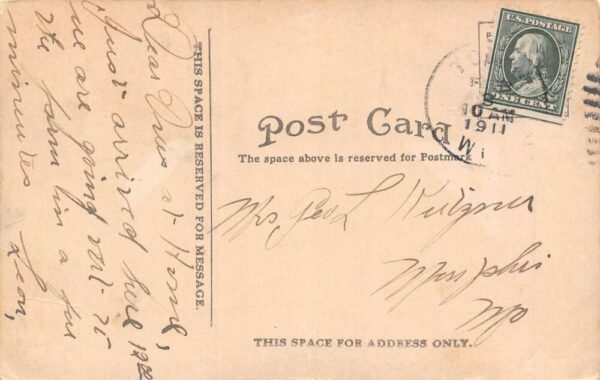 Dear Ones at Home,
Just arrived here 12
we are going out to
the farm in a few
minutes Leon,
THIS SPACE IS RESERVED FOR MESSAGE.
U.S. POSTAGE
ONE CENT
10 AM
1911
Post Card
The space above is reserved for Postmark
Mrs Geo L
Memphis
Mo
THIS SPACE FOR ADDRESS ONLY.